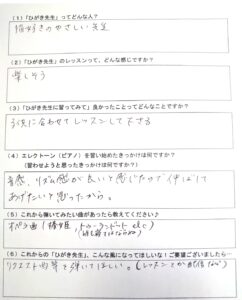 (1)「ひがき先生」ってどんな人？
猫好きのやさしい先生
(2)「ひがき先生」のレッスンって、どんな感じですか？
楽しそう
(3)「ひがき先生に習ってみて」良かったことってどんなことですか？
子供に合わせてレッスンして下さる
(4) エレクトーン（ピアノ）を習い始めたきっかけは何ですか？
（習わせようと思ったきっかけは何ですか？）
音感、リズム感が良いと感じたので伸ばして
あげたいと思ったから。
(5) これから弾いてみたい曲があったら教えてください♪
オペラ曲（椿姫、トゥーランドット etc）
(6) これからの「ひがき先生」、こんな風になってほしいな！ご要望ございましたら…
リクエスト曲等を弾いてほしい。（レッスンとか